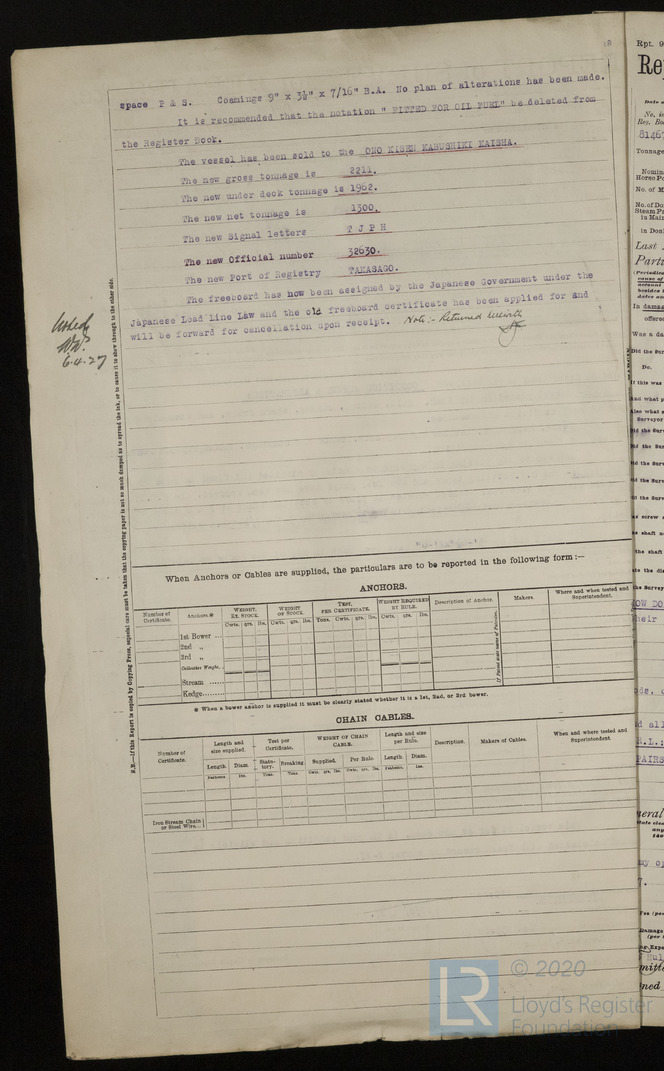 space P & S. Coamings 9" x 3½" x 7/16" B.A. No plan of alterations has been made.
It is recommended that the notation " FITTED FOR OIL FUEL" be deleted from
the Register Book.
The vessel has been sold to the ONO KISEN KABUSHIKI KAISHA.
The new gross tonnage is 2211.
The new under deck tonnage is 1962.
The new net tonnage is 1300.
The new Signal letters T J P H
The new Official number 32630.
The new Port of Registry TAKASAGO.
The freeboard has now been assigned by the Japanese Government under the
Japanese Load Line Law and the old freeboard certificate has been applied for and
will be forward for cancellation upon receipt. Note:- Returned
6.4.27
N.B.—If this Report is copied by Copying Press, especial care must be taken that the copying paper is not so much damped as to spread the ink, or to cause it to show through to the other side.
When Anchors or Cables are supplied, the particulars are to be reported in the following form :—
ANCHORS.
Number of Certificate. Anchors.* WEIGHT, EX. STOCK. WEIGHT OF STOCK. TEST, PER CERTIFICATE. WEIGHT REQUIRED BY RULE. Description of Anchor. Makers. Where and when tested and Superintendent.
Cwts. qrs. lbs. Cwts. qrs. lbs. Tons. Cwts. qrs. lbs. Cwts. qrs. lbs.
1st Bower ...
2nd „
3rd „
Collective Weight.
Stream ......
Kedge.........
* When a bower anchor is supplied it must be clearly stated whether it is a 1st, 2nd, or 3rd bower.
CHAIN CABLES.
Number of Certificate. Length and size supplied. Test per Certificate. WEIGHT OF CHAIN CABLE. Length and size per Rule. Description. Makers of Cables. When and where tested and Superintendent.
Length. Diam. Statutory. Breaking. Supplied. Per Rule. Length. Diam.
Fathoms. Ins. Tons. Tons. Cwts. qrs. lbs. Cwts. qrs. lbs. Fathoms. Ins.
Iron Stream Chain
or Steel Wire...
Rpt. 9
81467
Tonnage
No. of M
in Don
Last
Parti
In damage
Was a da
Did the Sur
Do.
If this was
© 2020
LR
Lloyd's Register
Foundation